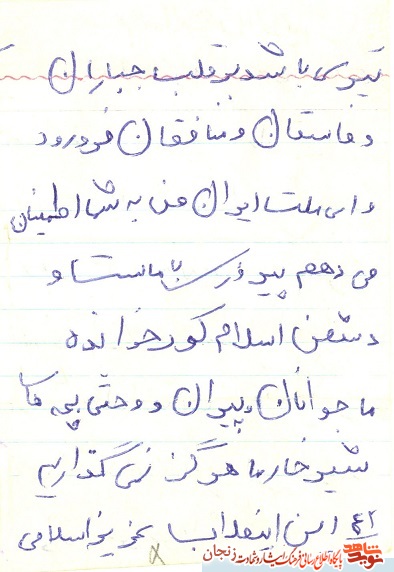 تیری باشد بر قلب جباران
و فاسقان و منافقان فرو رود
و ای ملت ایران من به شما اطمینان
می دهم پیروزی با ماست و
دشمن اسلام کور خوانده
ما جوانان و پیران و و حتی بچه های
شیرخوار ما هرگز نمی گذاریم
این انقلاب عزیز اسلامی
نوید شاهد
پایگاه اطلاع رسانی فرهنگ ایثار و شهادت زنجان